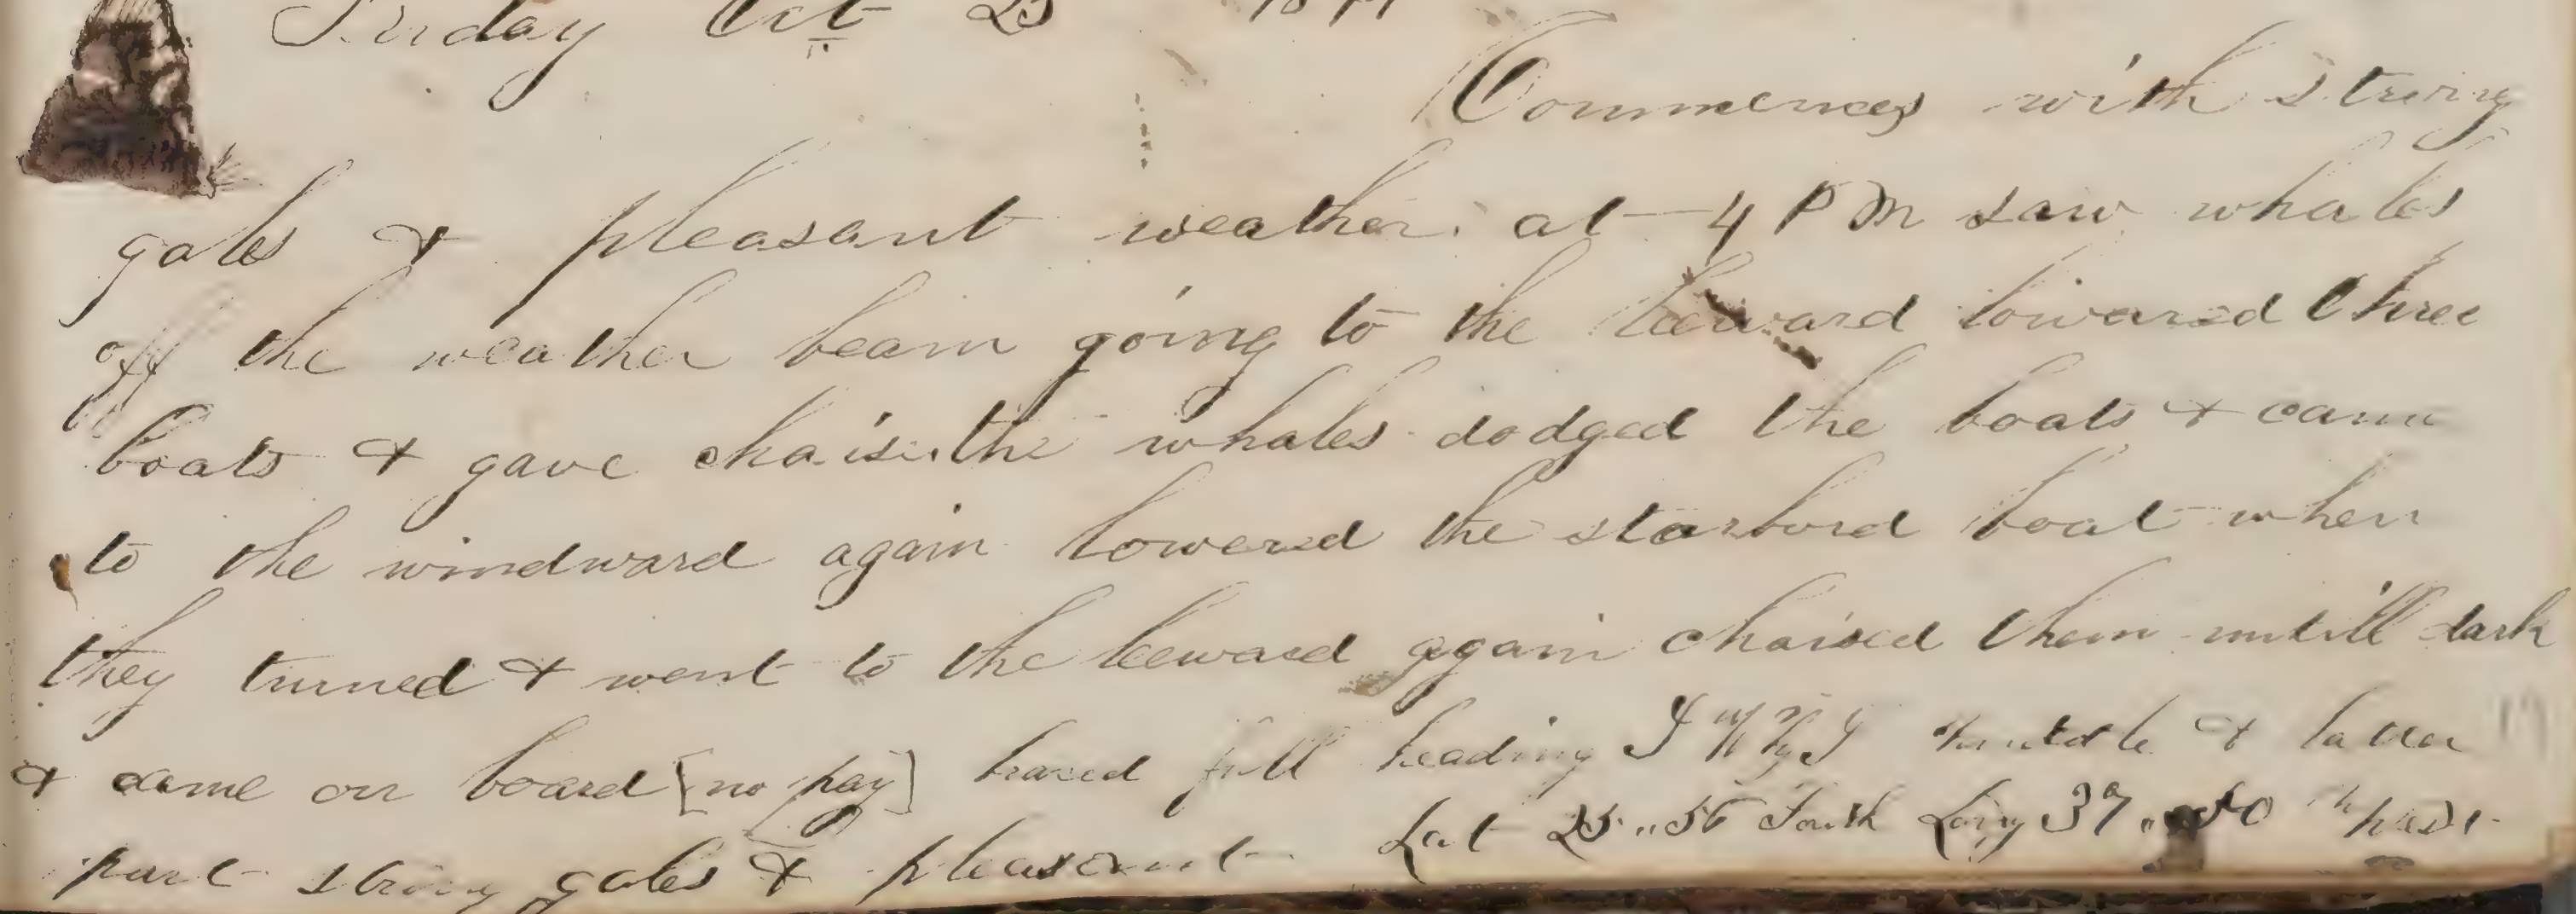 Friday Oct 25
Commences with strong
gales & pleasant weather. at 4 PM saw whales
off the weather beam going to the leeward lowared three
boats & gave chaise the whales dodged the boats & came
to the windward again lowered the starbord boat when
they turned & went to the leeward again chaised them untill dark
& came on board [no pay] braced full heading S W by S middle & latter
part strong gales & pleasant Lat 25 " 56 South Long 37 " 50 West